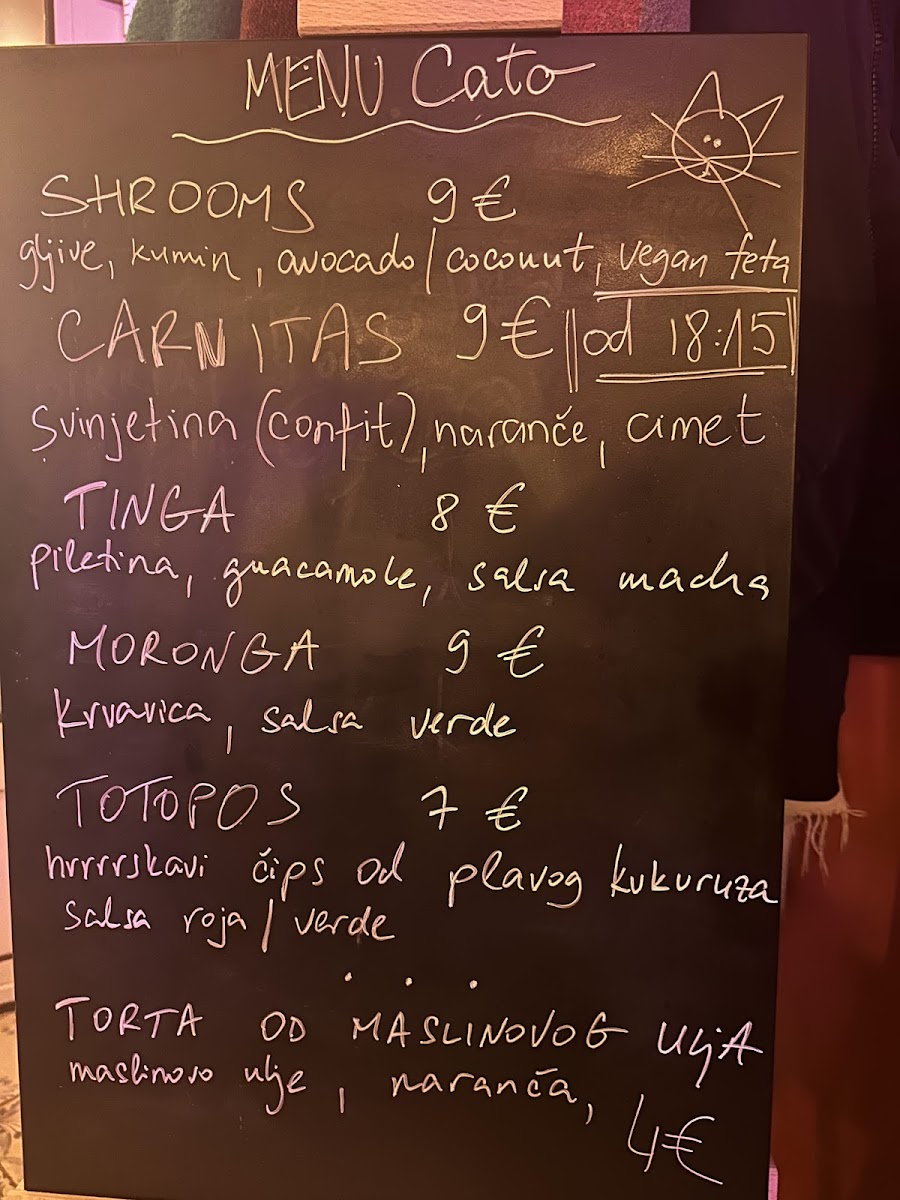 MENU Cato
SHROOMS 9 €
gljive, kumin, avocado/coconut, vegan feta
CARNITAS 9€ od 18:15
Svinjetina (confit), naranče, cimet
TINGA 8 €
piletina, guacamole, salsa macha
MORONGA 9 €
krvavica, salsa verde
TOTOPOS 7 €
hrrrrskavi čips od plavog kukuruza
salsa roja/verde
. . .
TORTA OD MASLINOVOG ULJA
maslinovo ulje, naranča,
4€